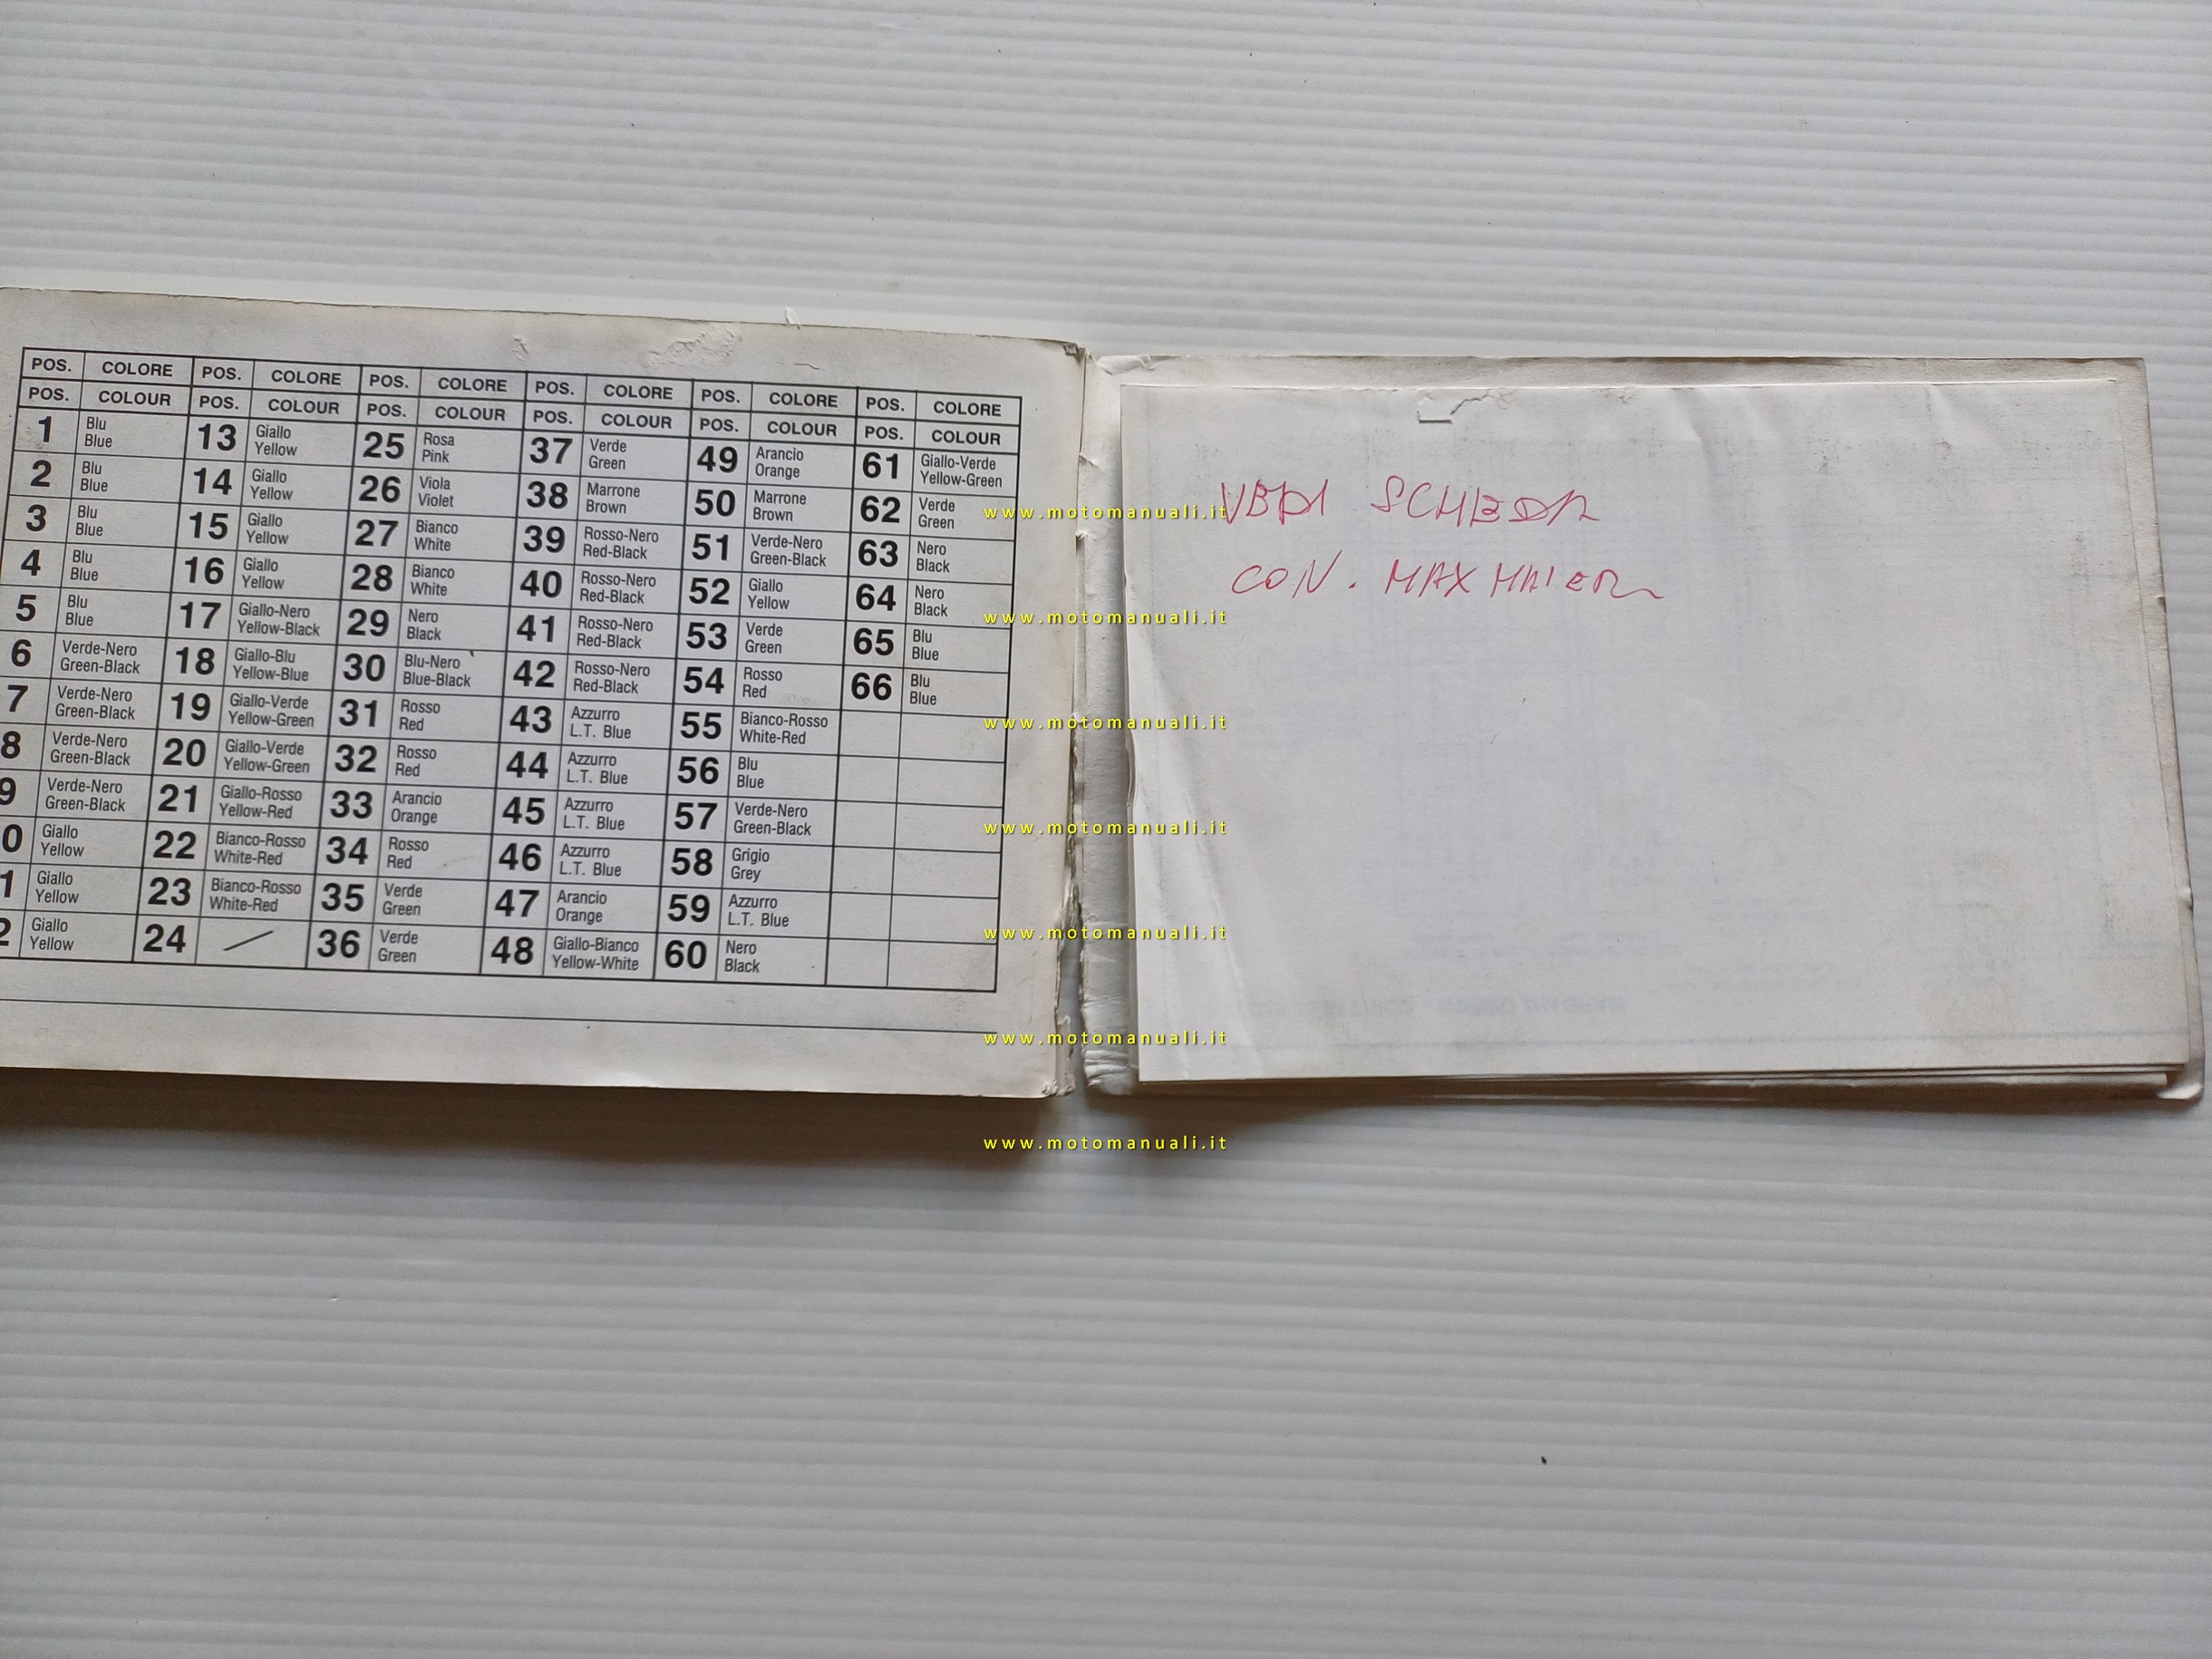 POS. COLORE POS. COLORE POS. COLORE POS. COLORE POS. COLORE POS. COLORE
POS. COLOUR POS. COLOUR POS. COLOUR POS. COLOUR POS. COLOUR POS. COLOUR
1 Blu Blue 13 Giallo Yellow 25 Rosa Pink 37 Verde Green 49 Arancio Orange 61 Giallo-Verde Yellow-Green
2 Blu Blue 14 Giallo Yellow 26 Viola Violet 38 Marrone Brown 50 Marrone Brown 62 Verde Green
3 Blu Blue 15 Giallo Yellow 27 Bianco White 39 Rosso-Nero Red-Black 51 Verde-Nero Green-Black 63 Nero Black
4 Blu Blue 16 Giallo Yellow 28 Bianco White 40 Rosso-Nero Red-Black 52 Giallo Yellow 64 Nero Black
5 Blu Blue 17 Giallo-Nero Yellow-Black 29 Nero Black 41 Rosso-Nero Red-Black 53 Verde Green 65 Blu Blue
6 Verde-Nero Green-Black 18 Giallo-Blu Yellow-Blue 30 Blu-Nero Blue-Black 42 Rosso-Nero Red-Black 54 Rosso Red 66 Blu Blue
7 Verde-Nero Green-Black 19 Giallo-Verde Yellow-Green 31 Rosso Red 43 Azzurro L.T. Blue 55 Bianco-Rosso White-Red
8 Verde-Nero Green-Black 20 Giallo-Verde Yellow-Green 32 Rosso Red 44 Azzurro L.T. Blue 56 Blu Blue
9 Verde-Nero Green-Black 21 Giallo-Rosso Yellow-Red 33 Arancio Orange 45 Azzurro L.T. Blue 57 Verde-Nero Green-Black
0 Giallo Yellow 22 Bianco-Rosso White-Red 34 Rosso Red 46 Azzurro L.T. Blue 58 Grigio Grey
1 Giallo Yellow 23 Bianco-Rosso White-Red 35 Verde Green 47 Arancio Orange 59 Azzurro L.T. Blue
2 Giallo Yellow 24 / 36 Verde Green 48 Giallo-Bianco Yellow-White 60 Nero Black
VEDI SCHEDA
CON. MAX MAIER
www.motomanuali.it
www.motomanuali.it
www.motomanuali.it
www.motomanuali.it
www.motomanuali.it
www.motomanuali.it
www.motomanuali.it